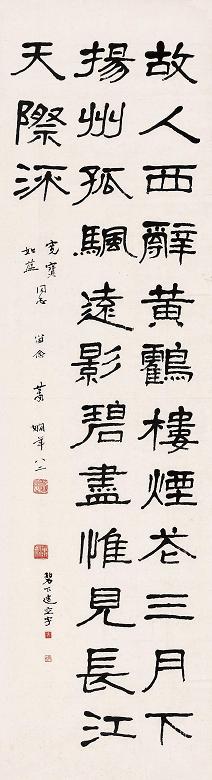 故人西辭黃鶴樓煙花三月下
揚州孤颿遠影碧盡惟見長江
天際流
寬寶
同志 留念 蕭嫻年八二
碧下遺空字